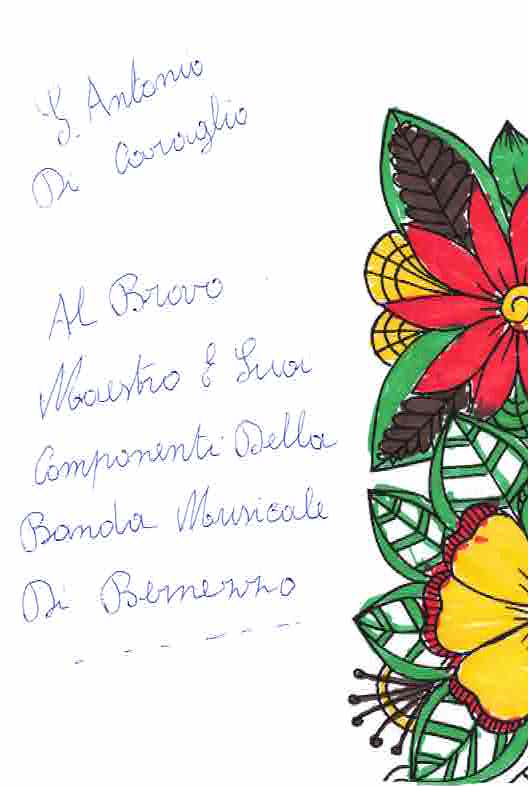 S. Antonio
Di Caraglio
Al Bravo
Maestro E Suoi
Componenti Della
Banda Musicale
Di Bernezzo